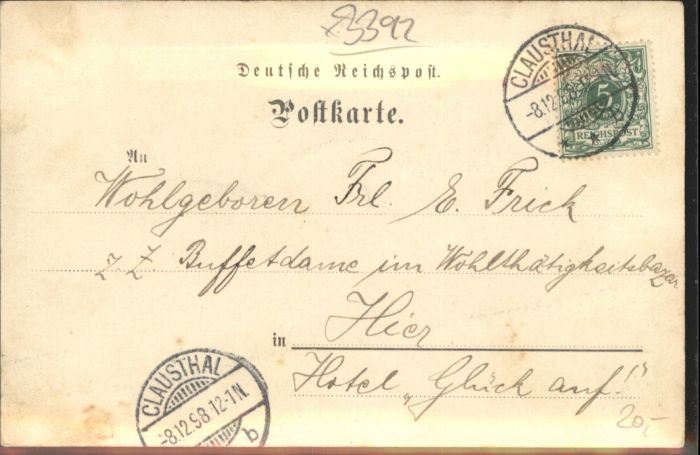 23392
Deutsche Reichspost.
Postkarte.
CLAUSTHAL
-8.12.98.
b
5
REICHSPOST
An
Wohlgeboren Frl. E. Frick
z Z Buffetdame im Wohlthätigkeitsbazar
in Hier
Hotel „Glück auf!"
CLAUSTHAL
-8.12.98.12-1N.
b
20,-